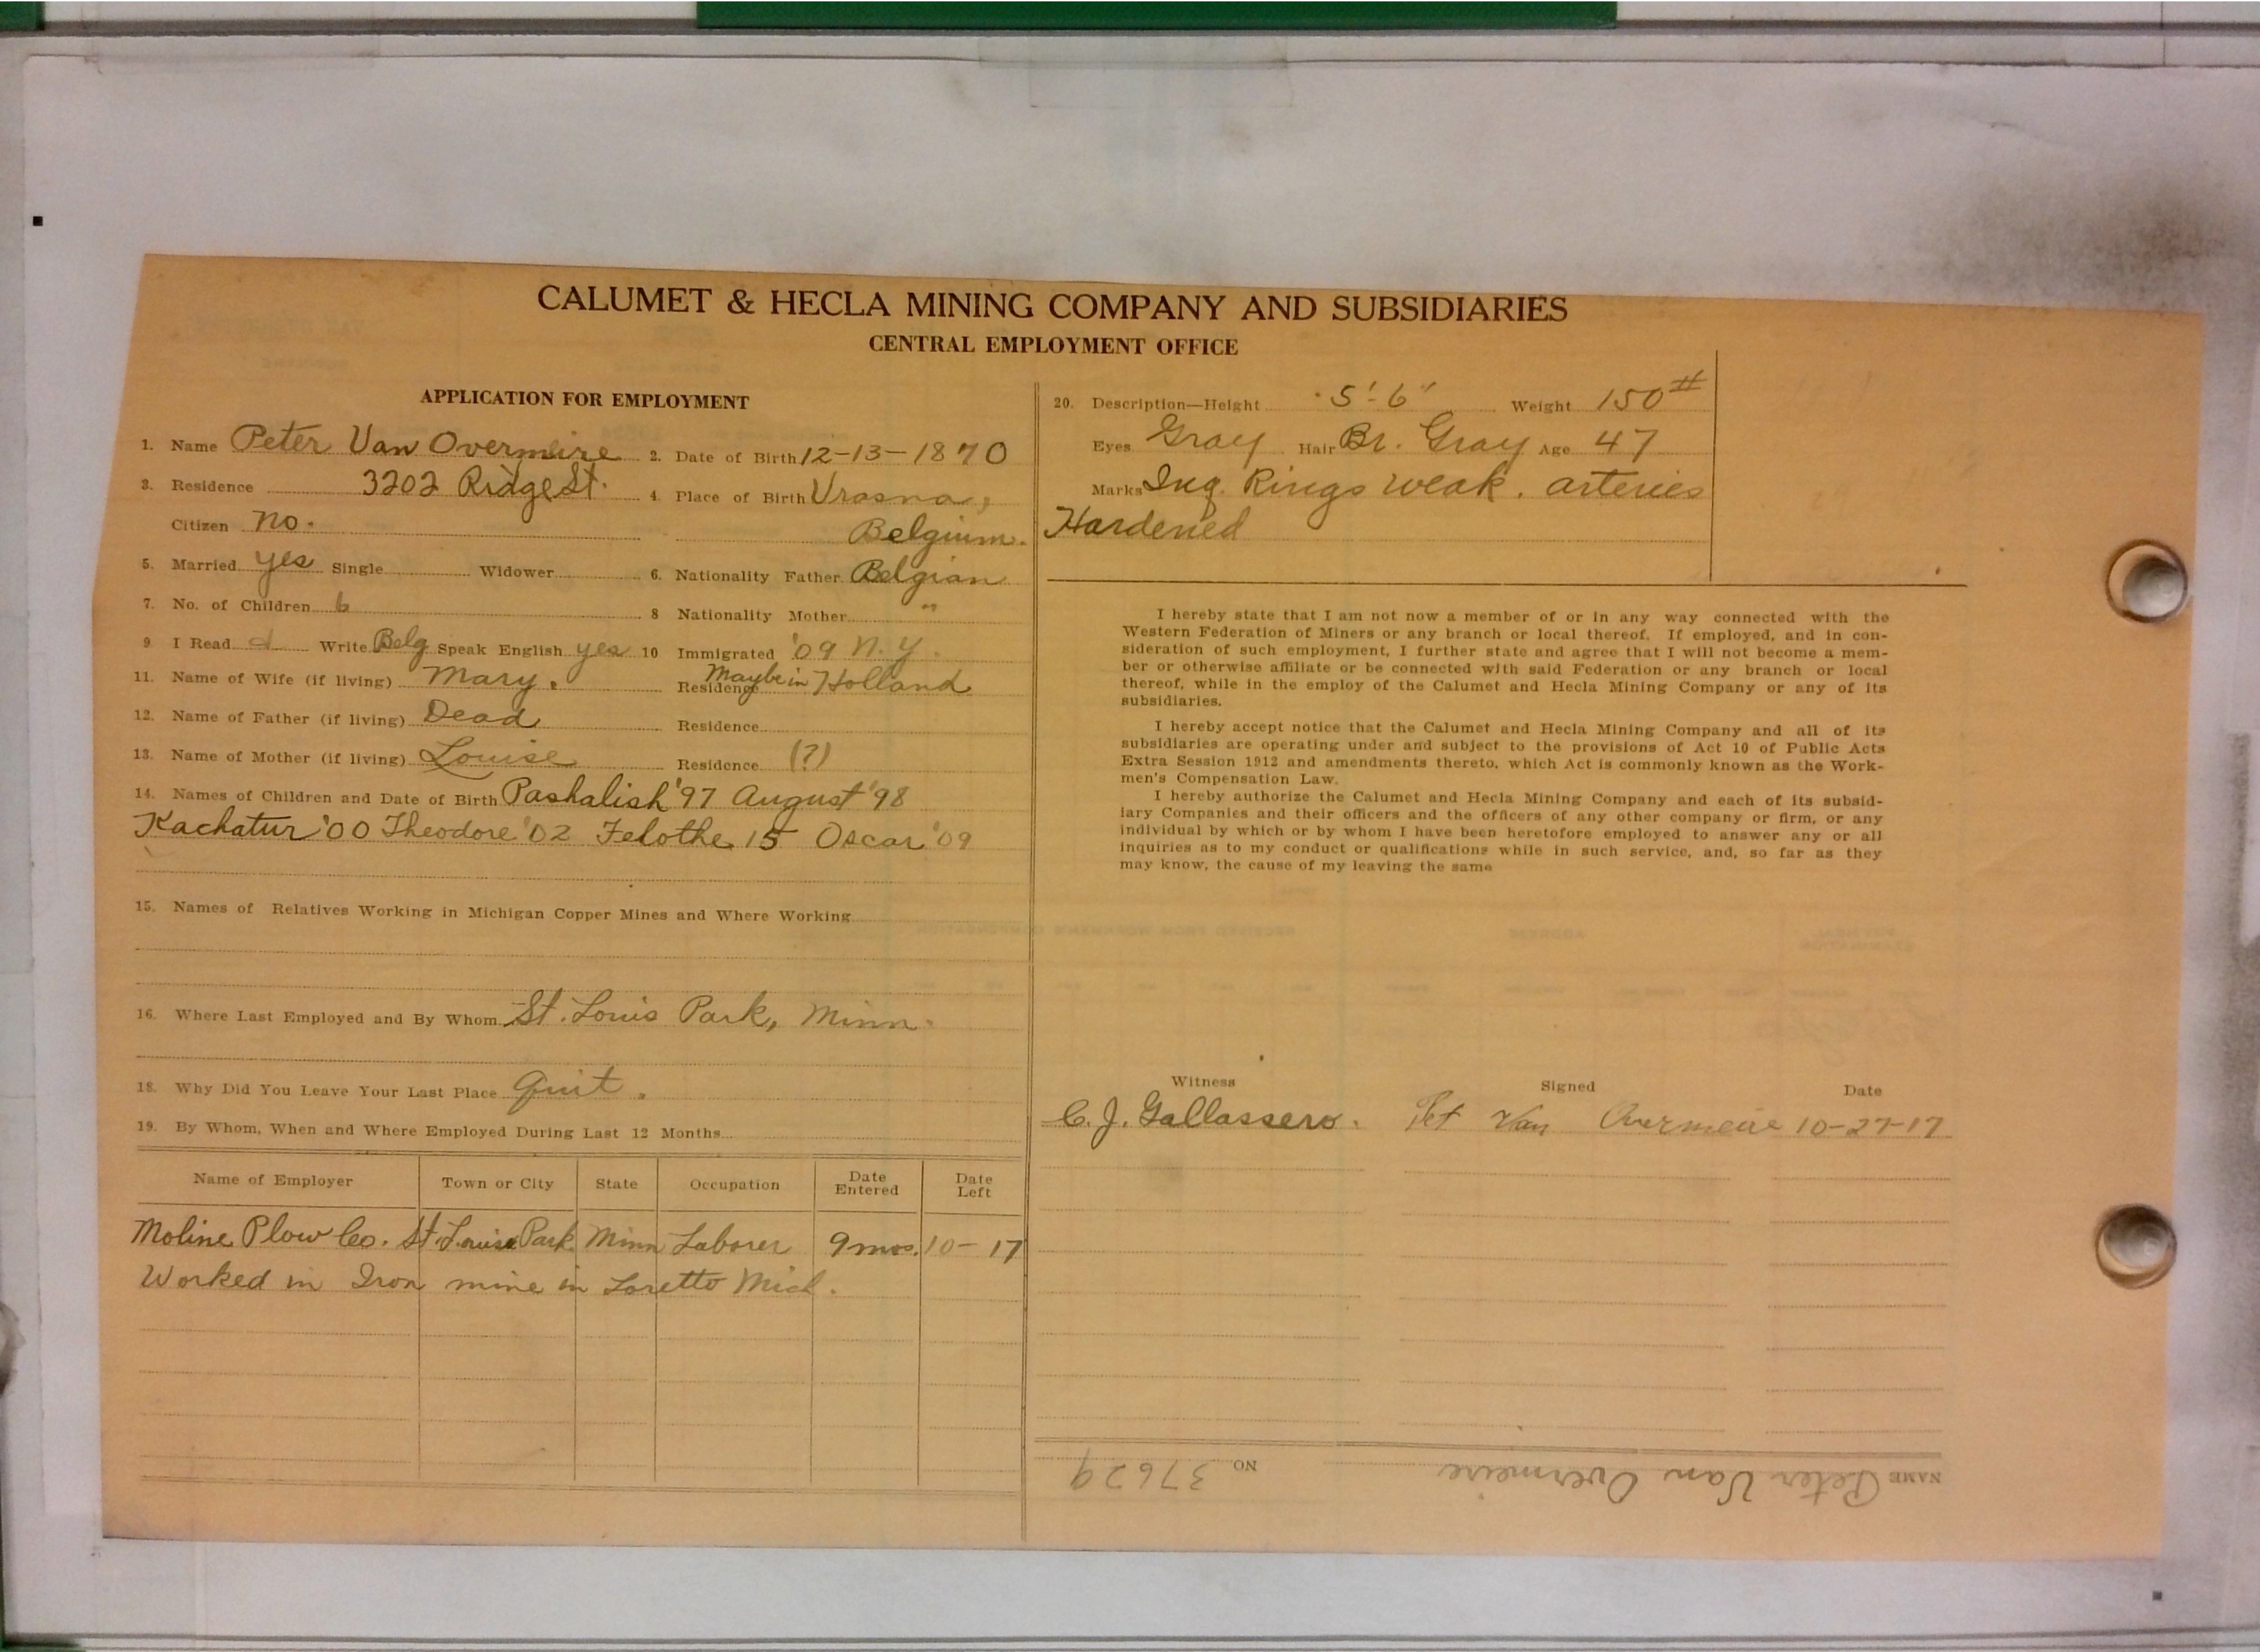 CALUMET & HECLA MINING COMPANY AND SUBSIDIARIES
CENTRAL EMPLOYMENT OFFICE
APPLICATION FOR EMPLOYMENT
1. Name Peter Van Overmeire 2. Date of Birth 12-13-1870
3. Residence 3202 Ridge St. 4. Place of Birth Vrasna,
Citizen no. Belgium.
5. Married yes Single Widower 6. Nationality Father Belgian
7. No. of Children 6 8 Nationality Mother "
9 I Read & Write Belg Speak English yes 10 Immigrated '09 N.Y.
11. Name of Wife (if living) Mary. Residence Maybe in Holland
12. Name of Father (if living) Dead Residence
13. Name of Mother (if living) Louise Residence (?)
14. Names of Children and Date of Birth Pashalish '97 August '98
Kachatur '00 Theodore '02 Felothe 15 Oscar '09
15. Names of Relatives Working in Michigan Copper Mines and Where Working
16. Where Last Employed and By Whom St. Louis Park, Minn.
18. Why Did You Leave Your Last Place Quit.
19. By Whom, When and Where Employed During Last 12 Months
Name of Employer Town or City State Occupation Date Entered Date Left
Moline Plow Co. St. Louise Park Minn Laborer 9 mos. 10-17
Worked in Iron mine in Loretto Mich.
20. Description—Height 5'-6" Weight 150#
Eyes Gray Hair Br. Gray Age 47
Marks Ing. Rings weak. arteries
Hardened
I hereby state that I am not now a member of or in any way connected with the
Western Federation of Miners or any branch or local thereof. If employed, and in con-
sideration of such employment, I further state and agree that I will not become a mem-
ber or otherwise affiliate or be connected with said Federation or any branch or local
thereof, while in the employ of the Calumet and Hecla Mining Company or any of its
subsidiaries.
I hereby accept notice that the Calumet and Hecla Mining Company and all of its
subsidiaries are operating under and subject to the provisions of Act 10 of Public Acts
Extra Session 1912 and amendments thereto, which Act is commonly known as the Work-
men's Compensation Law.
I hereby authorize the Calumet and Hecla Mining Company and each of its subsid-
iary Companies and their officers and the officers of any other company or firm, or any
individual by which or by whom I have been heretofore employed to answer any or all
inquiries as to my conduct or qualifications while in such service, and, so far as they
may know, the cause of my leaving the same
Witness Signed Date
C. J. Gallassero. Pet Van Overmeire 10-27-17
NAME Peter Van Overmeire NO 37629